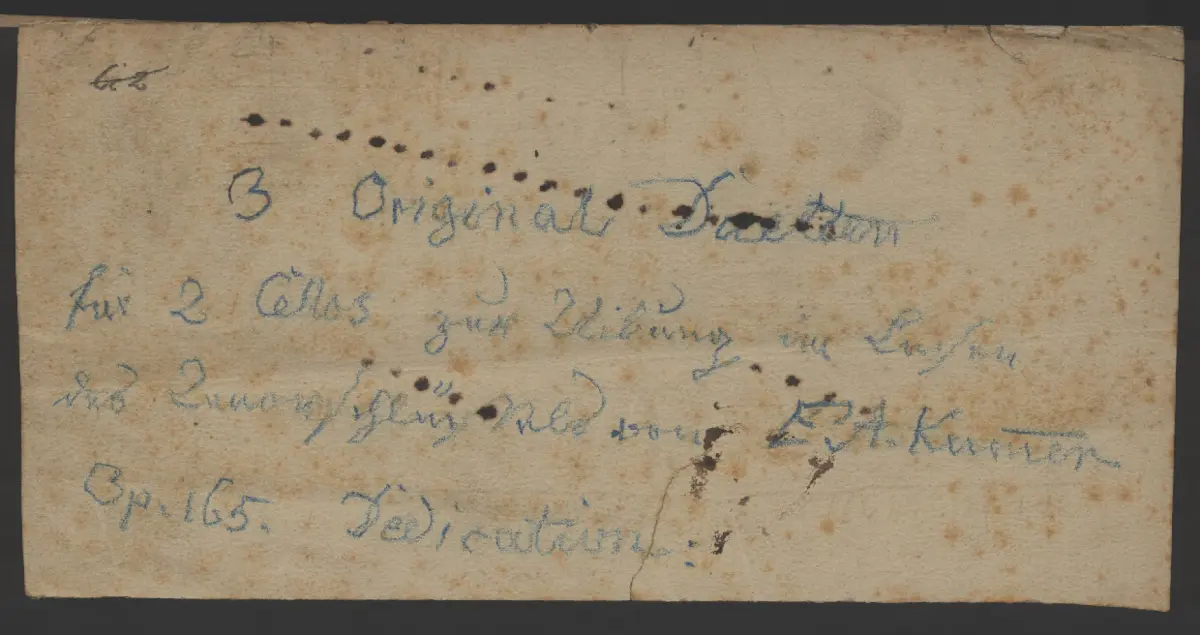 3 Original Duetten
für 2 Cellos zur Uibung im Lesen
des Tenorschlüßels von F. A. Kummer
Op. 165. Dedication: